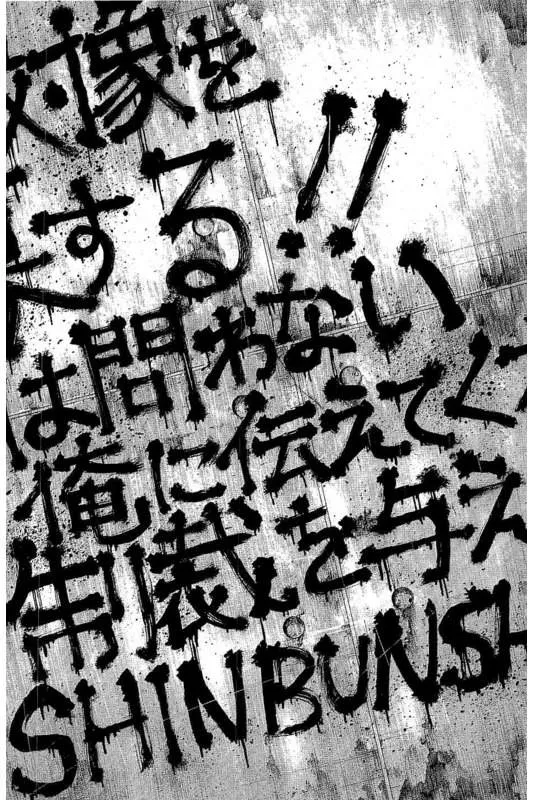 対象を
する!!
は問わない
俺に伝えてく
制裁を与え
SHINBUNSH